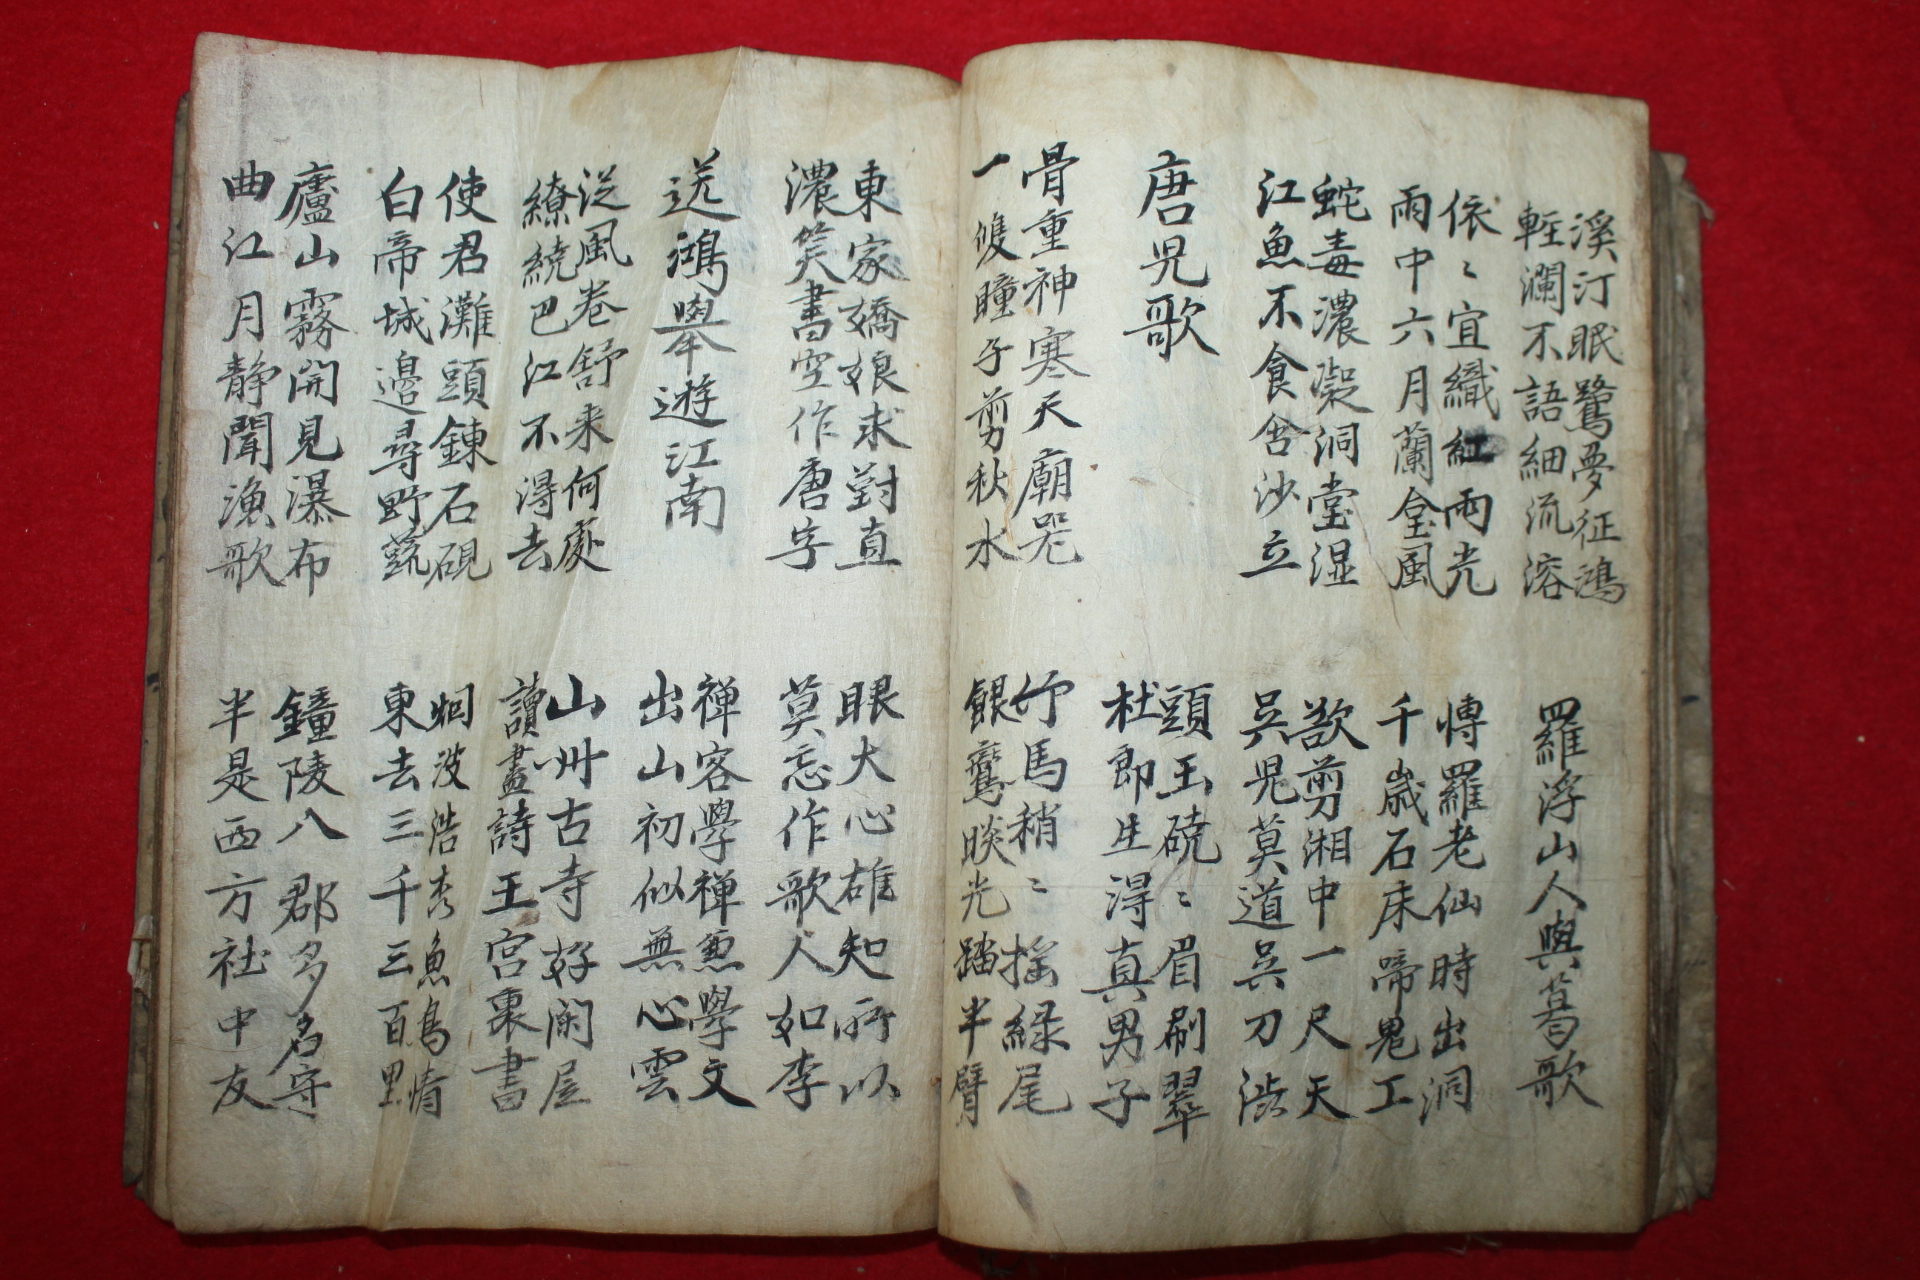 溪汀眠鷺夢征鴻
輕瀾不語細流溶
羅浮山人與葛歌
依〻宜織紅雨光
雨中六月蘭臺風
博羅老仙時出洞
千歲石床啼鬼工
蛇毒濃凝洞堂湿
江魚不食含沙立
欲剪湘中一尺天
吳児莫道吳刀澁
唐児歌
頭玉磽〻眉刷翠
杜郎生得真男子
骨重神寒天廟器
一雙瞳子剪秋水
竹馬稍〻搖綠尾
銀鸞睒光踏半臂
東家嬌娘求對直
濃笑書空作唐字
眼大心雄知所以
莫忘作歌人如李
送鴻舉遊江南
禅客學禅兼學文
出山初似無心雲
從風卷舒来何處
繚繞巴江不得去
山州古寺好閑居
讀盡詩王宮裏書
使君灘頭鍊石硯
白帝城邊尋野蔬
烟波浩杳魚鳥情
東去三千三百里
廬山霧開見瀑布
曲江月静聞漁歌
鐘陵八郡多名守
半是西方社中友